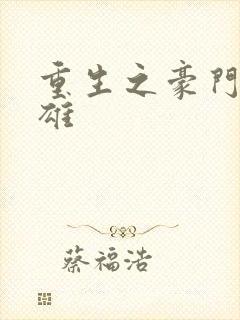 重生之豪門
雄
蔡福浩